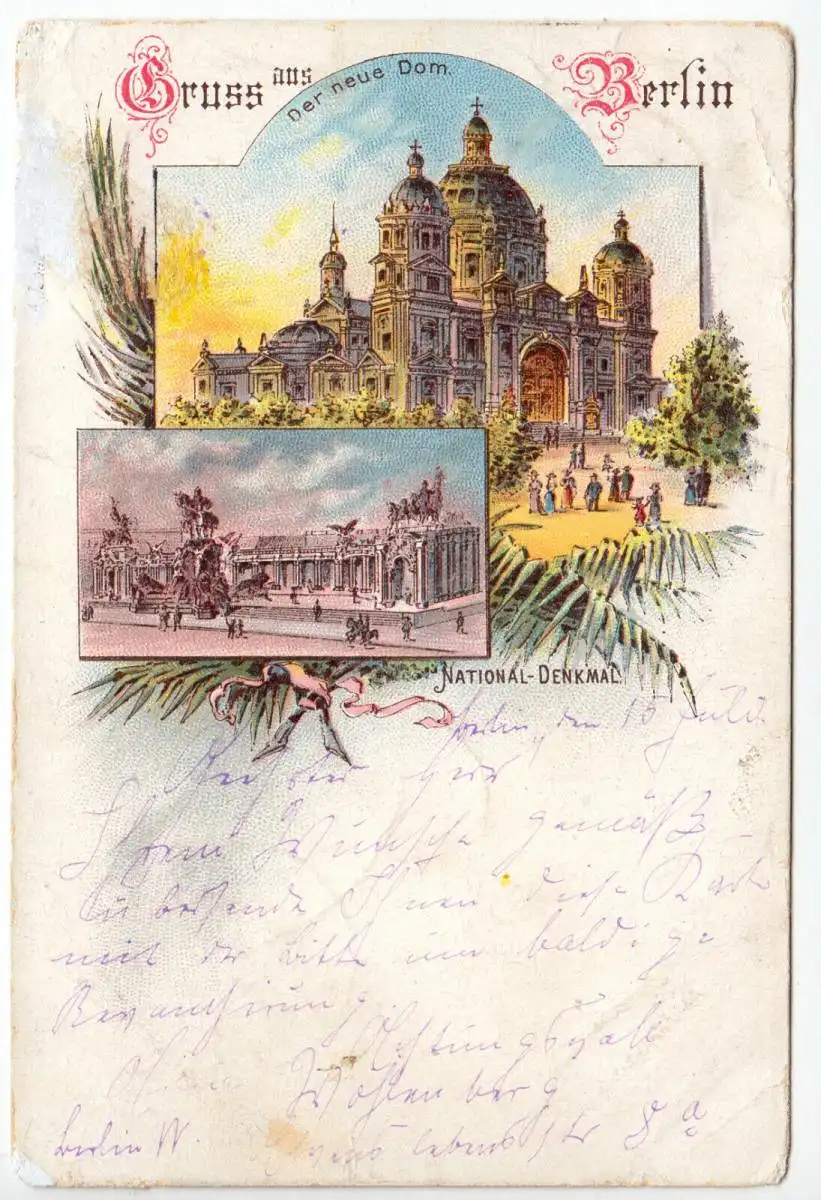 Gruss aus Berlin
Der neue Dom.
NATIONAL-DENKMAL.
Berlin, den 15 Juli
Herr
Ihrem Wunsche gemäß
übersende Ihnen diese Karte
mit der Bitte um baldige
Revanchirung.
Achtungsvoll
Wohlenberg
Berlin W. 8 a